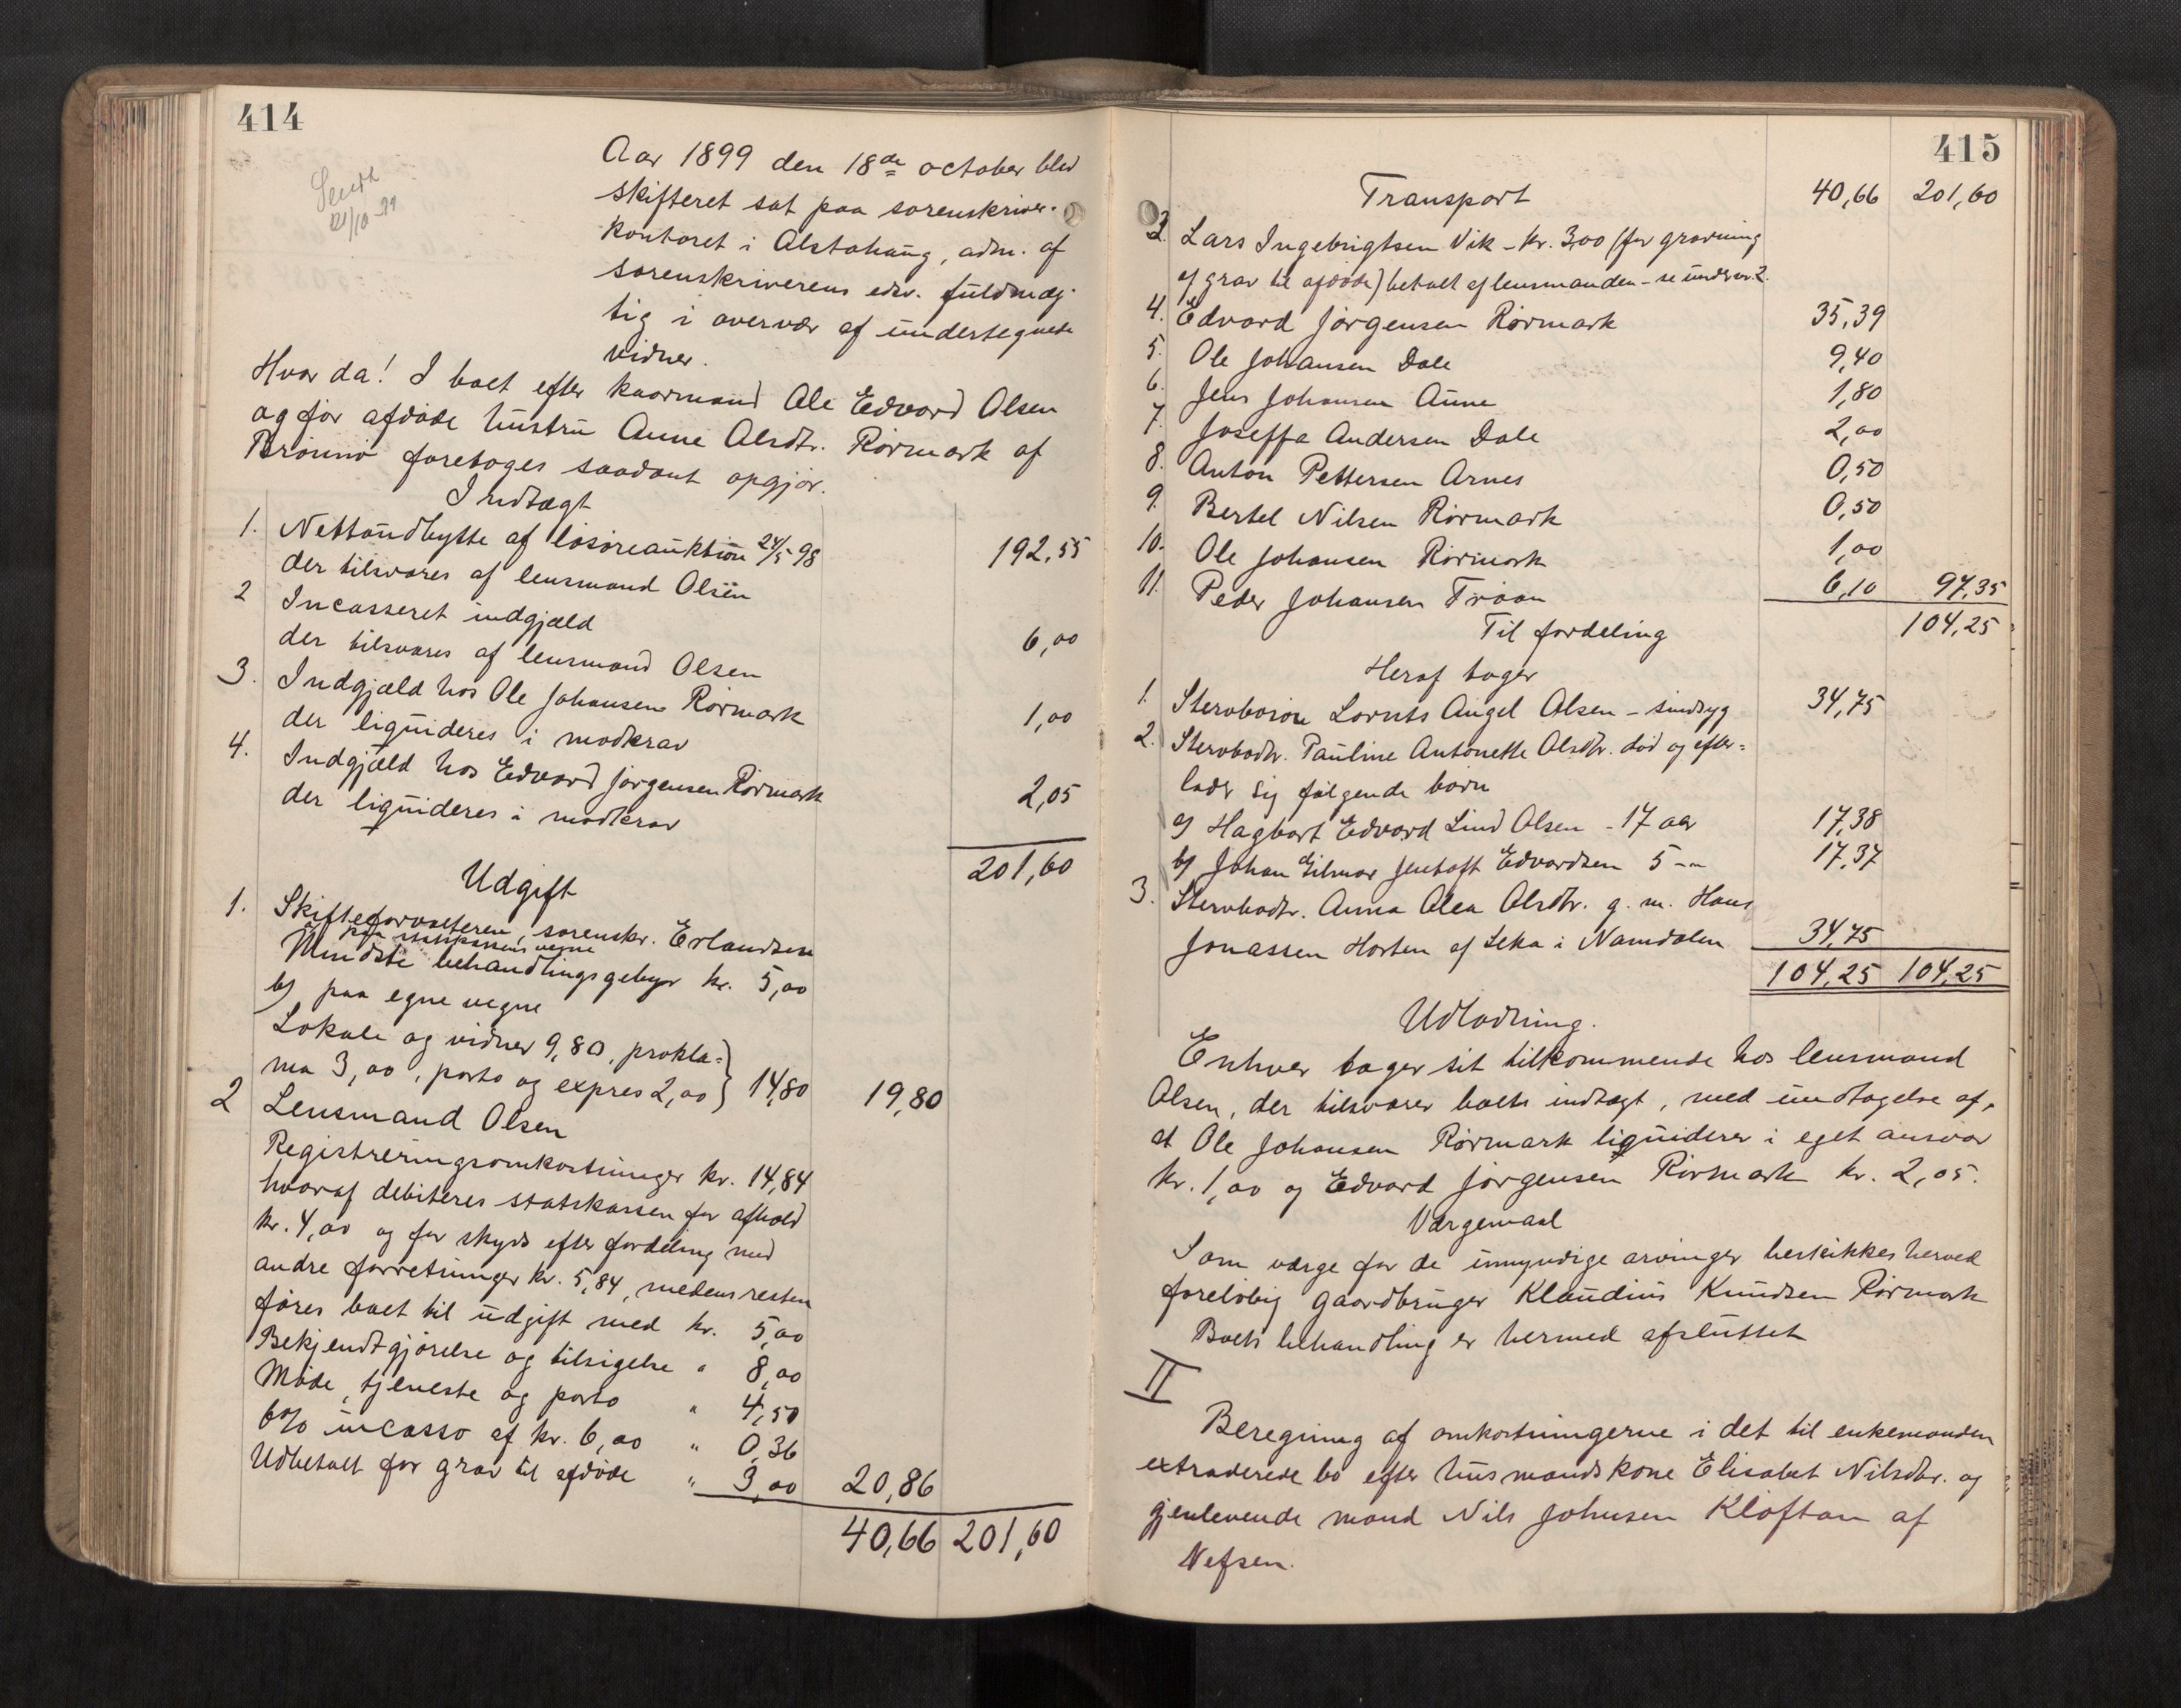 414
Sendt
21/10-99
Aar 1899 den 18de october blev
skifteret sat paa sorenskriver-
kontoret i Alstahaug, adm. af
sorenskriverens edsv. fuldmæg-
tig i overvær af undertegnede
vidner.
Hvor da! I boet efter kaarmand Ole Edvard Olsen
og før afdøde hustru Anne Olsdtr. Rørmark af
Brønnø foretoges saadant opgjør.
Indtægt
1. Nettoudbytte af løsøreauktion 24/5 98
der tilsvares af lensmand Olsen 192,55
2 Incasseret indgjæld
der tilsvares af lensmand Olsen 6,00
3. Indgjæld hos Ole Johansen Rørmark
der liquideres i modkrav 1,00
4. Indgjæld hos Edvard Jørgensen Rørmark
der liquideres i modkrav 2,05
201,60
Udgift
1. Skifteforvalteren, sorenskr. Erlandsen
a) paa statskassens vegne
Mindste behandlingsgebyr kr. 5,00
b) paa egne vegne
Lokale og vidner 9,80, prokla=
ma 3,00, porto og expres 2,00} 14,80 19,80
2 Lensmand Olsen
Registreringsomkostninger kr. 14,84
hvoraf debiteres statskassen for afhold
kr. 4,00 og for skyds efter fordeling med
andre forretninger kr. 5,84, medens resten
føres boet til udgift med kr. 5,00
Bekjendtgjørelse og tilsigelse " 8,00
Møde, tjeneste og porto " 4,50
6% incasso af kr. 6,00 " 0,36
Udbetalt for grav til afdøde " 3,00 20,86
40,66 201,60
415
Transport 40,66 201,60
3. Lars Ingebrigtsen Vik - kr. 3,00 (for gravning
af grav til afdøde) betalt af lensmanden - se under nr. 2.
4. Edvard Jørgensen Rørmark 35,39
5. Ole Johansen Dale 9,40
6. Jens Johansen Aune 1,80
7. Joseffa Andersen Dale 2,00
8. Anton Pettersen Arnes 0,50
9. Bertel Nilsen Rørmark 0,50
10. Ole Johansen Rørmark 1,00
11. Peder Johansen Trøan 6,10 97,35
Til fordeling 104,25
Heraf tager
1. Stervbosøn Lornts Angel Olsen - sindsyg 34,75
2. Stervbodtr. Pauline Antonette Olsdtr. død og efter=
lader sig følgende børn
a) Hagbart Edvard Lind Olsen - 17 aar 17,38
b) Johan Hilmar Jentoft Edvardsen 5 - " 17,37
3. Stervbodtr. Anna Olea Olsdtr. g. m. Hans
Jonassen Horten af Leka i Namdalen 34,75
104,25 104,25
Udlodning.
Enhver tager sit tilkommende hos lensmand
Olsen, der tilsvarer boets indtægt, med undtagelse af,
at Ole Johansen Rørmark liquiderer i eget ansvar
kr. 1,00 og Edvard Jørgensen Rørmark kr. 2,05.
Værgemaal
Som værge for de umyndige arvinger beskikkes herved
foreløbig gaardbruger Klaudius Knudsen Rørmark
Boets behandling er hermed afsluttet
II
Beregning af omkostningerne i det til enkemanden
extraderede bo efter husmandskone Elisabet Nilsdtr. og
gjenlevende mand Nils Johnsen Kloftan af
Vefsen.